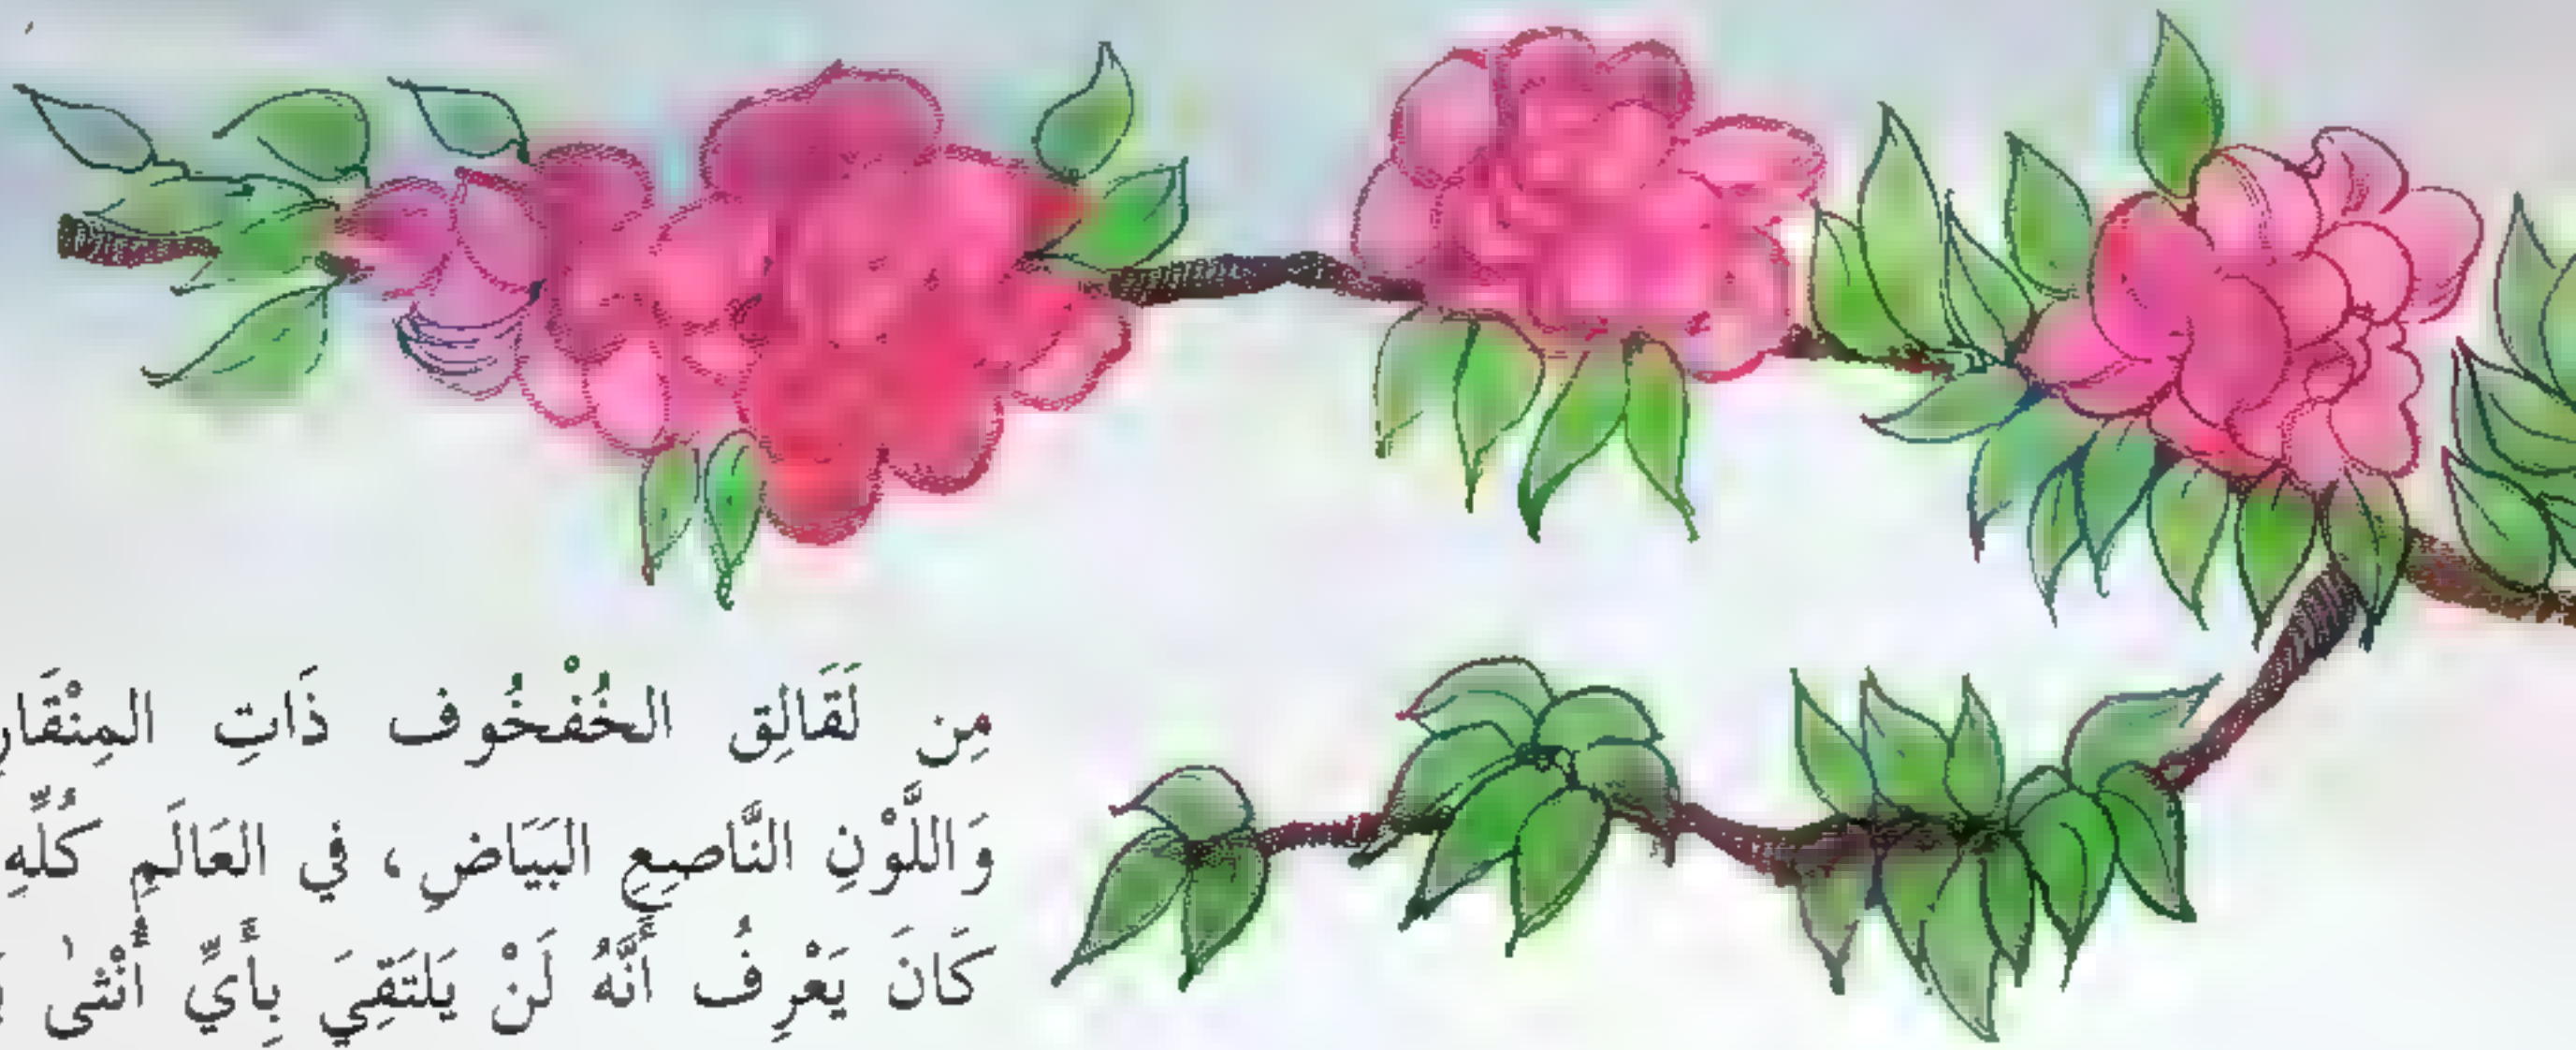 مِن لَقَالِق الخُفْخُوف ذَاتِ المِنْقَارِ
وَاللَّوْنِ النَّاصِعِ البَيَاضِ، في العَالَمِ كُلِّهِ
كَانَ يَعْرِفُ أَنَّهُ لَنْ يَلتَقِيَ بِأَيِّ أُنْثىٰ